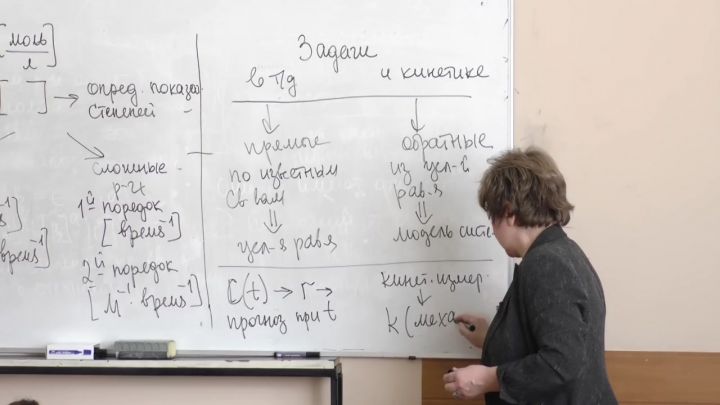 [моль/л]
[ ] → опред. показа
степеней –
сложные -
р-ии
1й порядок
[время⁻¹]
время⁻¹]
2й порядок
[М⁻¹·время⁻¹]
Задачи
в т/д и кинетике
прямые
по известным
св-вам
⇓
усл-я равя
обратные
из усл-й
рав-я
⇓
модель систе
C(t) → r →
прогноз при t
кинет. измер.
↓
k (меха